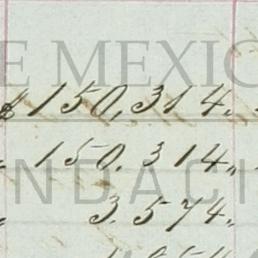 E MEXIC
$ 150,314„
„ 150.314„
NDACI
„ 3.574„